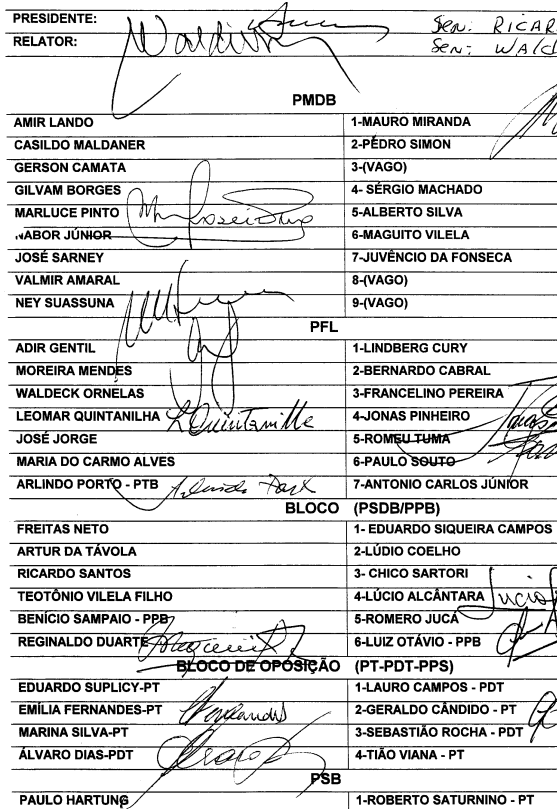 PRESIDENTE: Sen: RICAR
RELATOR: Sen: WALD
PMDB
AMIR LANDO 1-MAURO MIRANDA
CASILDO MALDANER 2-PEDRO SIMON
GERSON CAMATA 3-(VAGO)
GILVAM BORGES 4- SÉRGIO MACHADO
MARLUCE PINTO 5-ALBERTO SILVA
NABOR JÚNIOR 6-MAGUITO VILELA
JOSÉ SARNEY 7-JUVÊNCIO DA FONSECA
VALMIR AMARAL 8-(VAGO)
NEY SUASSUNA 9-(VAGO)
PFL
ADIR GENTIL 1-LINDBERG CURY
MOREIRA MENDES 2-BERNARDO CABRAL
WALDECK ORNELAS 3-FRANCELINO PEREIRA
LEOMAR QUINTANILHA LQuintanilha 4-JONAS PINHEIRO
JOSÉ JORGE 5-ROMEU TUMA
MARIA DO CARMO ALVES 6-PAULO SOUTO
ARLINDO PORTO - PTB Arlindo Porto 7-ANTONIO CARLOS JÚNIOR
BLOCO (PSDB/PPB)
FREITAS NETO 1- EDUARDO SIQUEIRA CAMPOS
ARTUR DA TÁVOLA 2-LÚDIO COELHO
RICARDO SANTOS 3- CHICO SARTORI
TEOTÔNIO VILELA FILHO 4-LÚCIO ALCÂNTARA Lucio
BENÍCIO SAMPAIO - PPB 5-ROMERO JUCÁ
REGINALDO DUARTE 6-LUIZ OTÁVIO - PPB
BLOCO DE OPOSIÇÃO (PT-PDT-PPS)
EDUARDO SUPLICY-PT 1-LAURO CAMPOS - PDT
EMÍLIA FERNANDES-PT 2-GERALDO CÂNDIDO - PT
MARINA SILVA-PT 3-SEBASTIÃO ROCHA - PDT
ÁLVARO DIAS-PDT 4-TIÃO VIANA - PT
PSB
PAULO HARTUNG 1-ROBERTO SATURNINO - PT